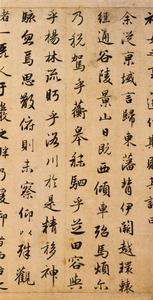 余從京域言歸東藩背伊闕越轘轅
經通谷陵景山日既西傾車殆馬煩爾
乃稅駕乎蘅皋秣駟乎芝田容與
乎楊林流眄乎洛川於是精移神
駭忽焉思散俯則未察仰以殊觀
一麗人于巖之畔